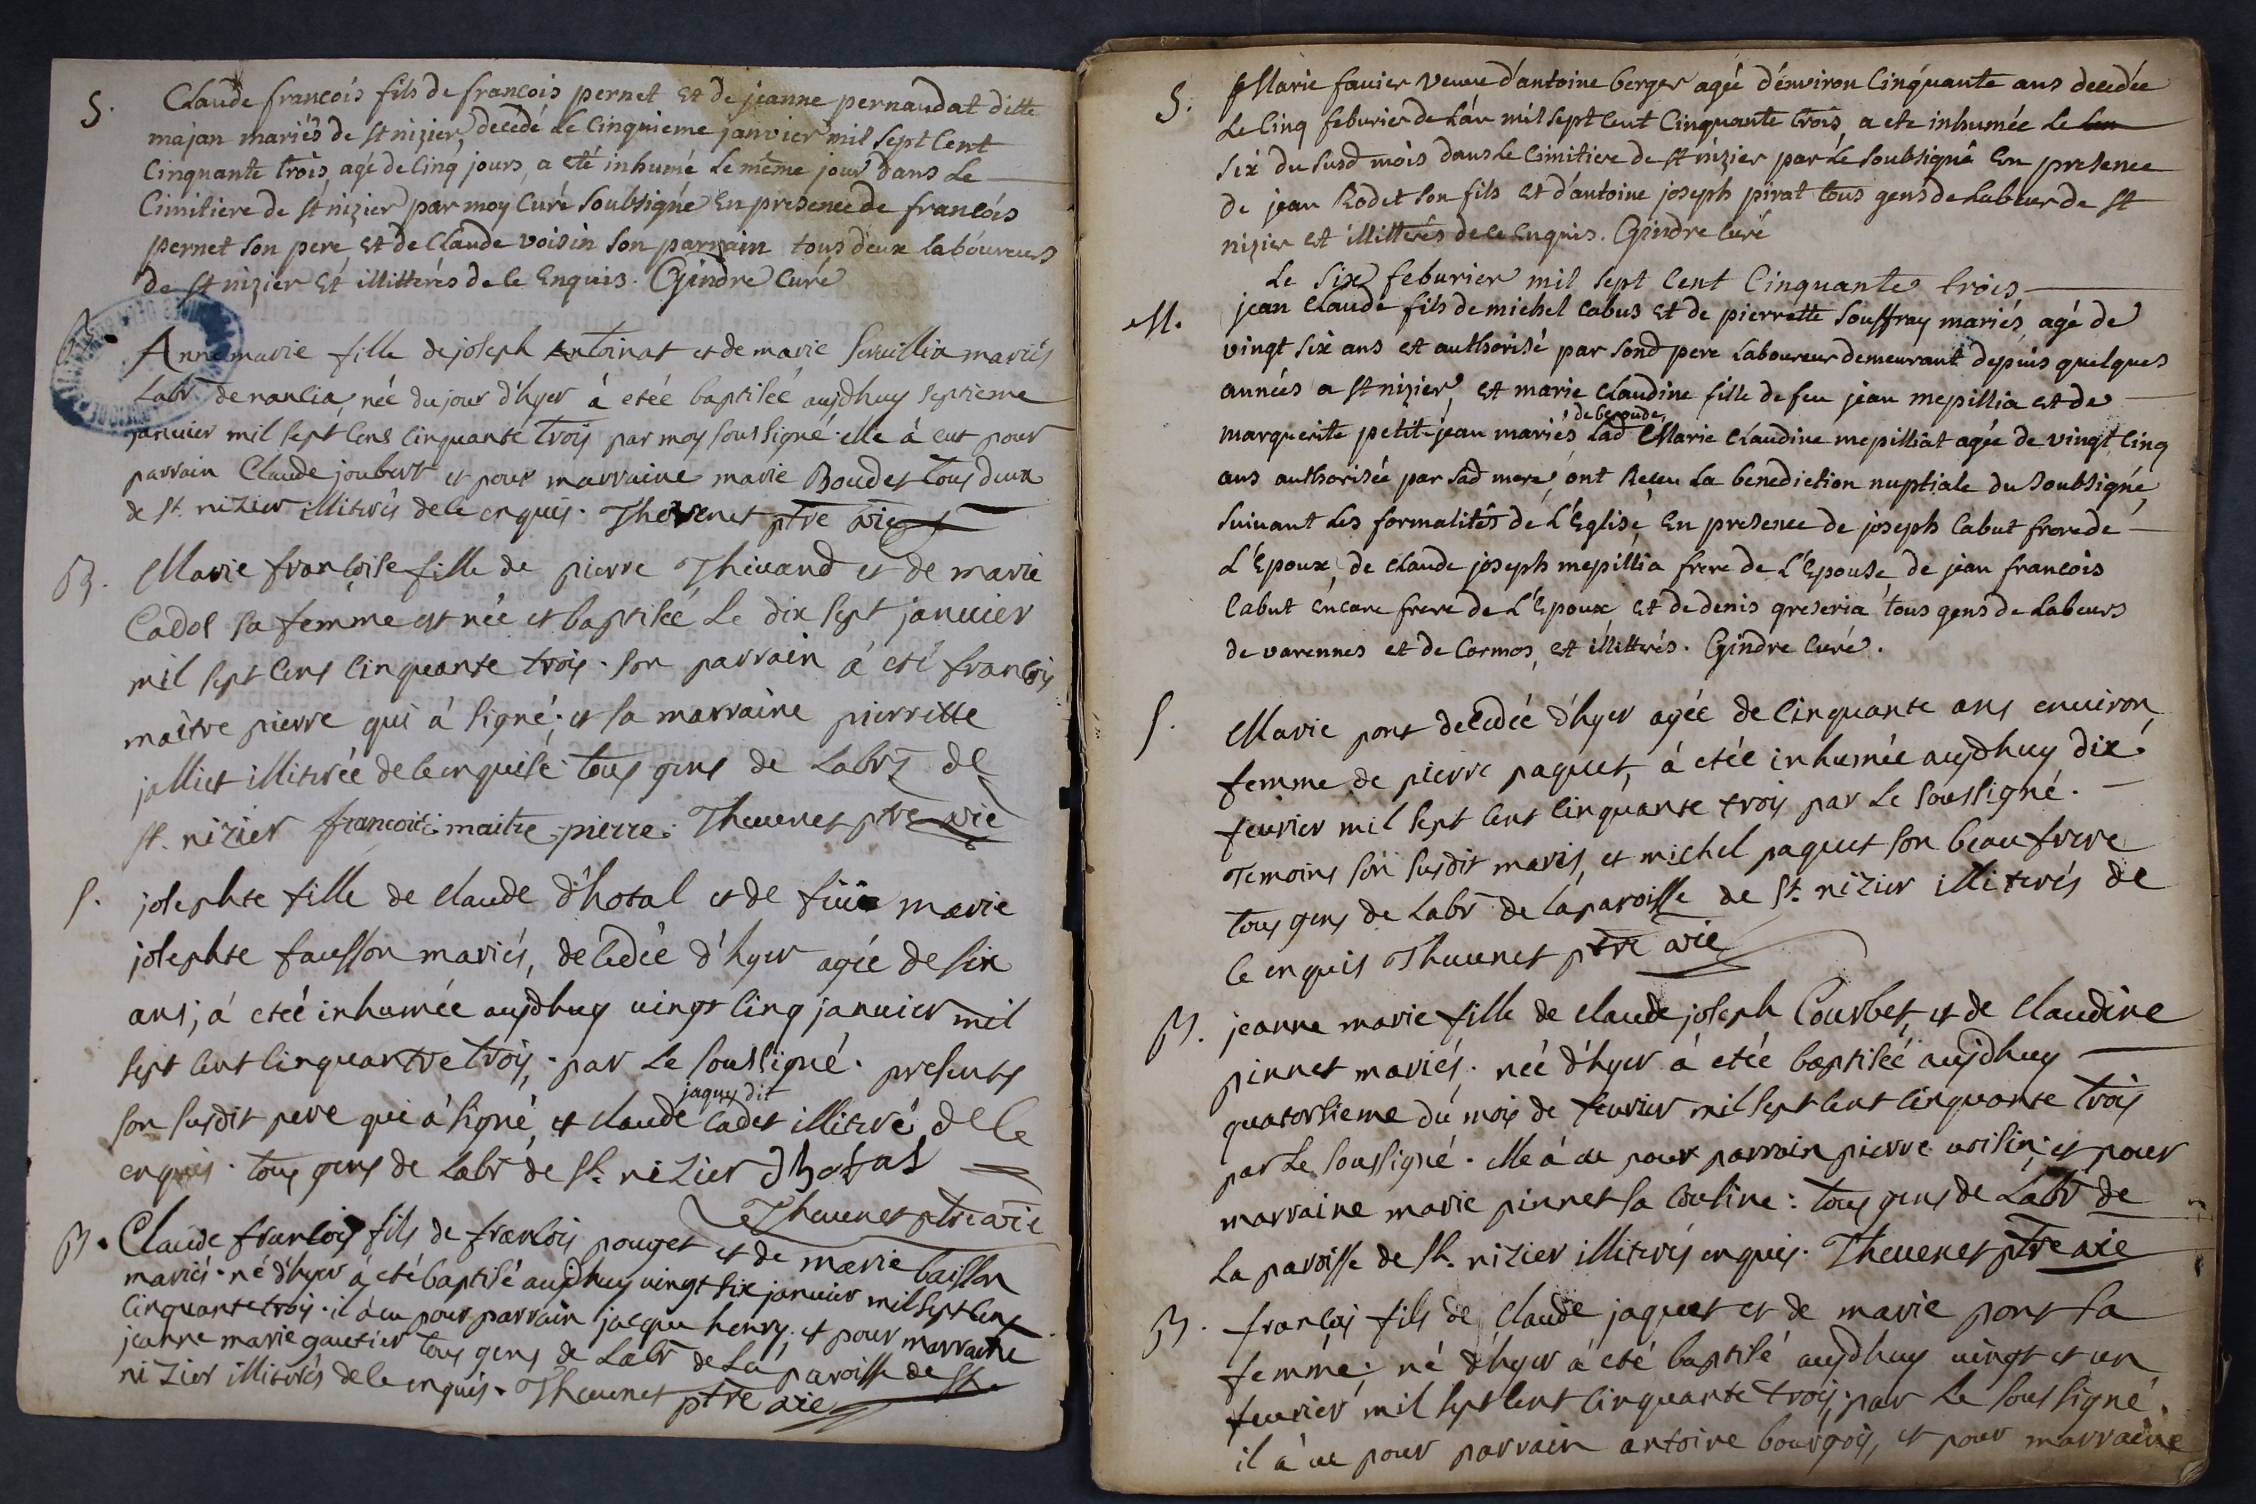 S. Claude francois fils de francois pernet et de jeanne pernaudat ditte
majan mariés de st nizier, decedé Le cinquieme janvier mil sept cent
cinquante trois, agé de cinq jours, a eté inhumé Le même jour dans Le
cimitiere de st nizier par moy curé soubsigné en presence de francois
pernet son pere, et de claude voisin son parrain tous deux laboureurs
de st nizier et illitterés de ce enquis. Gindre curé
B. Anne marie fille de joseph Antoinat et de marie mariés
Labr de nancia, née du jour d'hyer à etée baptisée aujdhuy septieme
janvier mil sept cens cinquante trois par moy soussigné. elle à eut pour
parrain Claude joubert et pour marraine marie Boudet tous deux
de st. nizier illiterés de ce enquis. Thevenet ptre vic
B. Marie francoise fille de pierre Thivand et de marie
Cadot sa femme est née et baptisée Le dix sept janvier
mil sept cens cinquante trois. son parrain à eté francois
maitre pierre qui à signé; et sa marraine pierrette
jalliet illiterée de ce enquise tous gens de Labr de
st. nizier françois maitre pierre. Thevenet ptre vic
S. josephte fille de claude d'hotal et de marie
josephte fausson mariés, decedée d'hyer agée de six
ans, à etée inhumée aujdhuy vingt cinq janvier mil
sept cent cinquantre trois, par Le soussigné. presents
son susdit pere qui à signé, et claude jaques dit cadet illiteré de ce
enquis. tous gens de Labr de st. nizier Dhotal
Thevenet ptre vic
B. Claude francois fils de francois pouget et de marie baisson
mariés. né d'hyer à eté baptisé aujdhuy vingt six janvier mil sept cens
cinquante trois. il à eu pour parrain jacque henry, et pour marraine
jeanne marie gautier tous gens de Labr de La paroisse de st.
nizier illiterés de ce enquis. Thevenet ptre vic
S. Marie favier veuve d'antoine berger agée d'environ cinquante ans decedée
Le cinq feburier de L'an mil sept cent cinquante trois, a ete inhumée Le
six du susd mois dans Le cimitiere de st nizier par Le soubsigné en presence
de jean Rodet son fils et d'antoine joseph pirat tous gens de Labeur de st
nizier et illitterés de ce enquis. Gindre curé
Le six feburier mil sept cent cinquante trois
M. jean claude fils de michel cabus et de pierrette souffray mariés, agé de
vingt six ans et authorisé par sond pere Laboureur demeurant depuis quelques
années a st nizier, et marie claudine fille de feu jean mepillia et de
marguerite petit-jean mariés Lad Marie claudine mepilliat agée de vingt cinq
ans authorisée par sad mere, ont Receu La benediction nuptiale du soubsigné,
suivant Les formalités de L'Eglise, en presence de joseph cabut frere de
L'Epoux, de claude joseph mepillia frere de L'Epouse, de jean francois
cabut encore frere de L'Epoux et de denis greseria tous gens de Labeurs
de varennes et de cormos, et illitterés. Gindre curé.
S. Marie pont decedée d'hyer agée de cinquante ans environ,
femme de pierre paquet, à etée inhumée aujdhuy dix
fevrier mil sept cent cinquante trois par Le soussigné.
Temoins son susdit maris, et michel paquet son beaufrere
tous gens de Labr de La paroisse de st. nizier illiterés de
ce enquis Thevenet ptre vic
B. jeanne marie fille de claude joseph Courbet, et de claudine
pinnet mariés. née d'hyer à etée baptisée aujdhuy
quatorsieme du mois de fevrier mil sept cent cinquante trois
par Le soussigné. elle à eu pour parrain pierre voisin; et pour
marraine marie pinnet sa cousine: tous gens de Labr de
La paroisse de st. nizier illiterés enquis. Thevenet ptre vic
B. francois fils de claude jaquet et de marie pont sa
femme; né d'hyer à eté baptisé aujdhuy vingt et un
fevrier mil sept cent cinquante trois, par Le soussigné.
il à eu pour parrain antoine bourgois, et pour marraine